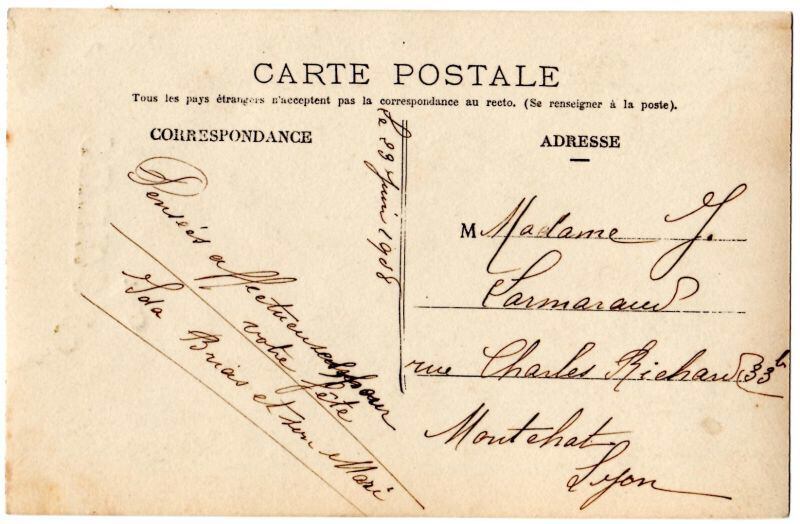 CARTE POSTALE
Tous les pays étrangers n'acceptent pas la correspondance au recto. (Se renseigner à la poste).
CORRESPONDANCE
Le 29 Juin 1908
Pensées affectueuses pour
votre fête
Ida Brias et son Mari
ADRESSE
M Madame J.
Larmaraud
rue Charles Richard 33b
Montchat
Lyon